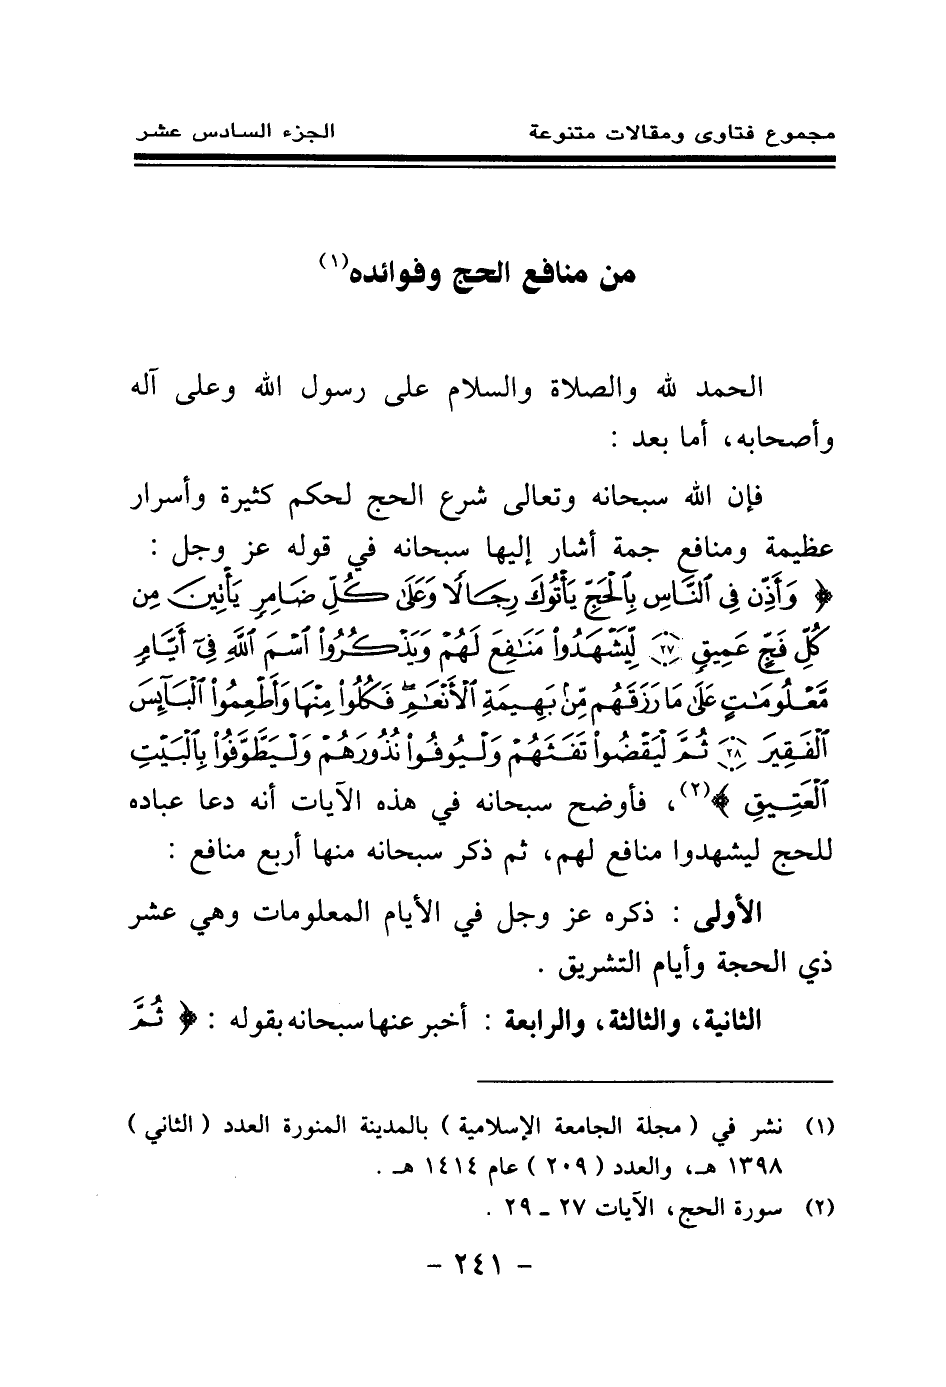 مجموع فتاوى ومقالات متنوعة الجزء السادس عشر
من منافع الحج وفوائده(١)
الحمد لله والصلاة والسلام على رسول الله وعلى آله
وأصحابه، أما بعد :
فإن الله سبحانه وتعالى شرع الحج لحكم كثيرة وأسرار
عظيمة ومنافع جمة أشار إليها سبحانه في قوله عز وجل :
﴿ وَأَذِّن فِي ٱلنَّاسِ بِٱلْحَجِّ يَأْتُوكَ رِجَالًا وَعَلَىٰ كُلِّ ضَامِرٍ يَأْتِينَ مِن
كُلِّ فَجٍّ عَمِيقٍ ٢٧ لِّيَشْهَدُوا۟ مَنَٰفِعَ لَهُمْ وَيَذْكُرُوا۟ ٱسْمَ ٱللَّهِ فِىٓ أَيَّامٍ
مَّعْلُومَٰتٍ عَلَىٰ مَا رَزَقَهُم مِّنۢ بَهِيمَةِ ٱلْأَنْعَٰمِ ۖ فَكُلُوا۟ مِنْهَا وَأَطْعِمُوا۟ ٱلْبَآئِسَ
ٱلْفَقِيرَ ٢٨ ثُمَّ لْيَقْضُوا۟ تَفَثَهُمْ وَلْيُوفُوا۟ نُذُورَهُمْ وَلْيَطَّوَّفُوا۟ بِٱلْبَيْتِ
ٱلْعَتِيقِ ﴾(٢)، فأوضح سبحانه في هذه الآيات أنه دعا عباده
للحج ليشهدوا منافع لهم، ثم ذكر سبحانه منها أربع منافع :
الأولى : ذكره عز وجل في الأيام المعلومات وهي عشر
ذي الحجة وأيام التشريق .
الثانية، والثالثة، والرابعة : أخبر عنها سبحانه بقوله : ﴿ ثُمَّ
(١) نشر في ( مجلة الجامعة الإسلامية ) بالمدينة المنورة العدد ( الثاني )
١٣٩٨ هـ، والعدد ( ٢٠٩ ) عام ١٤١٤ هـ .
(٢) سورة الحج، الآيات ٢٧ ـ ٢٩ .
- ٢٤١ -